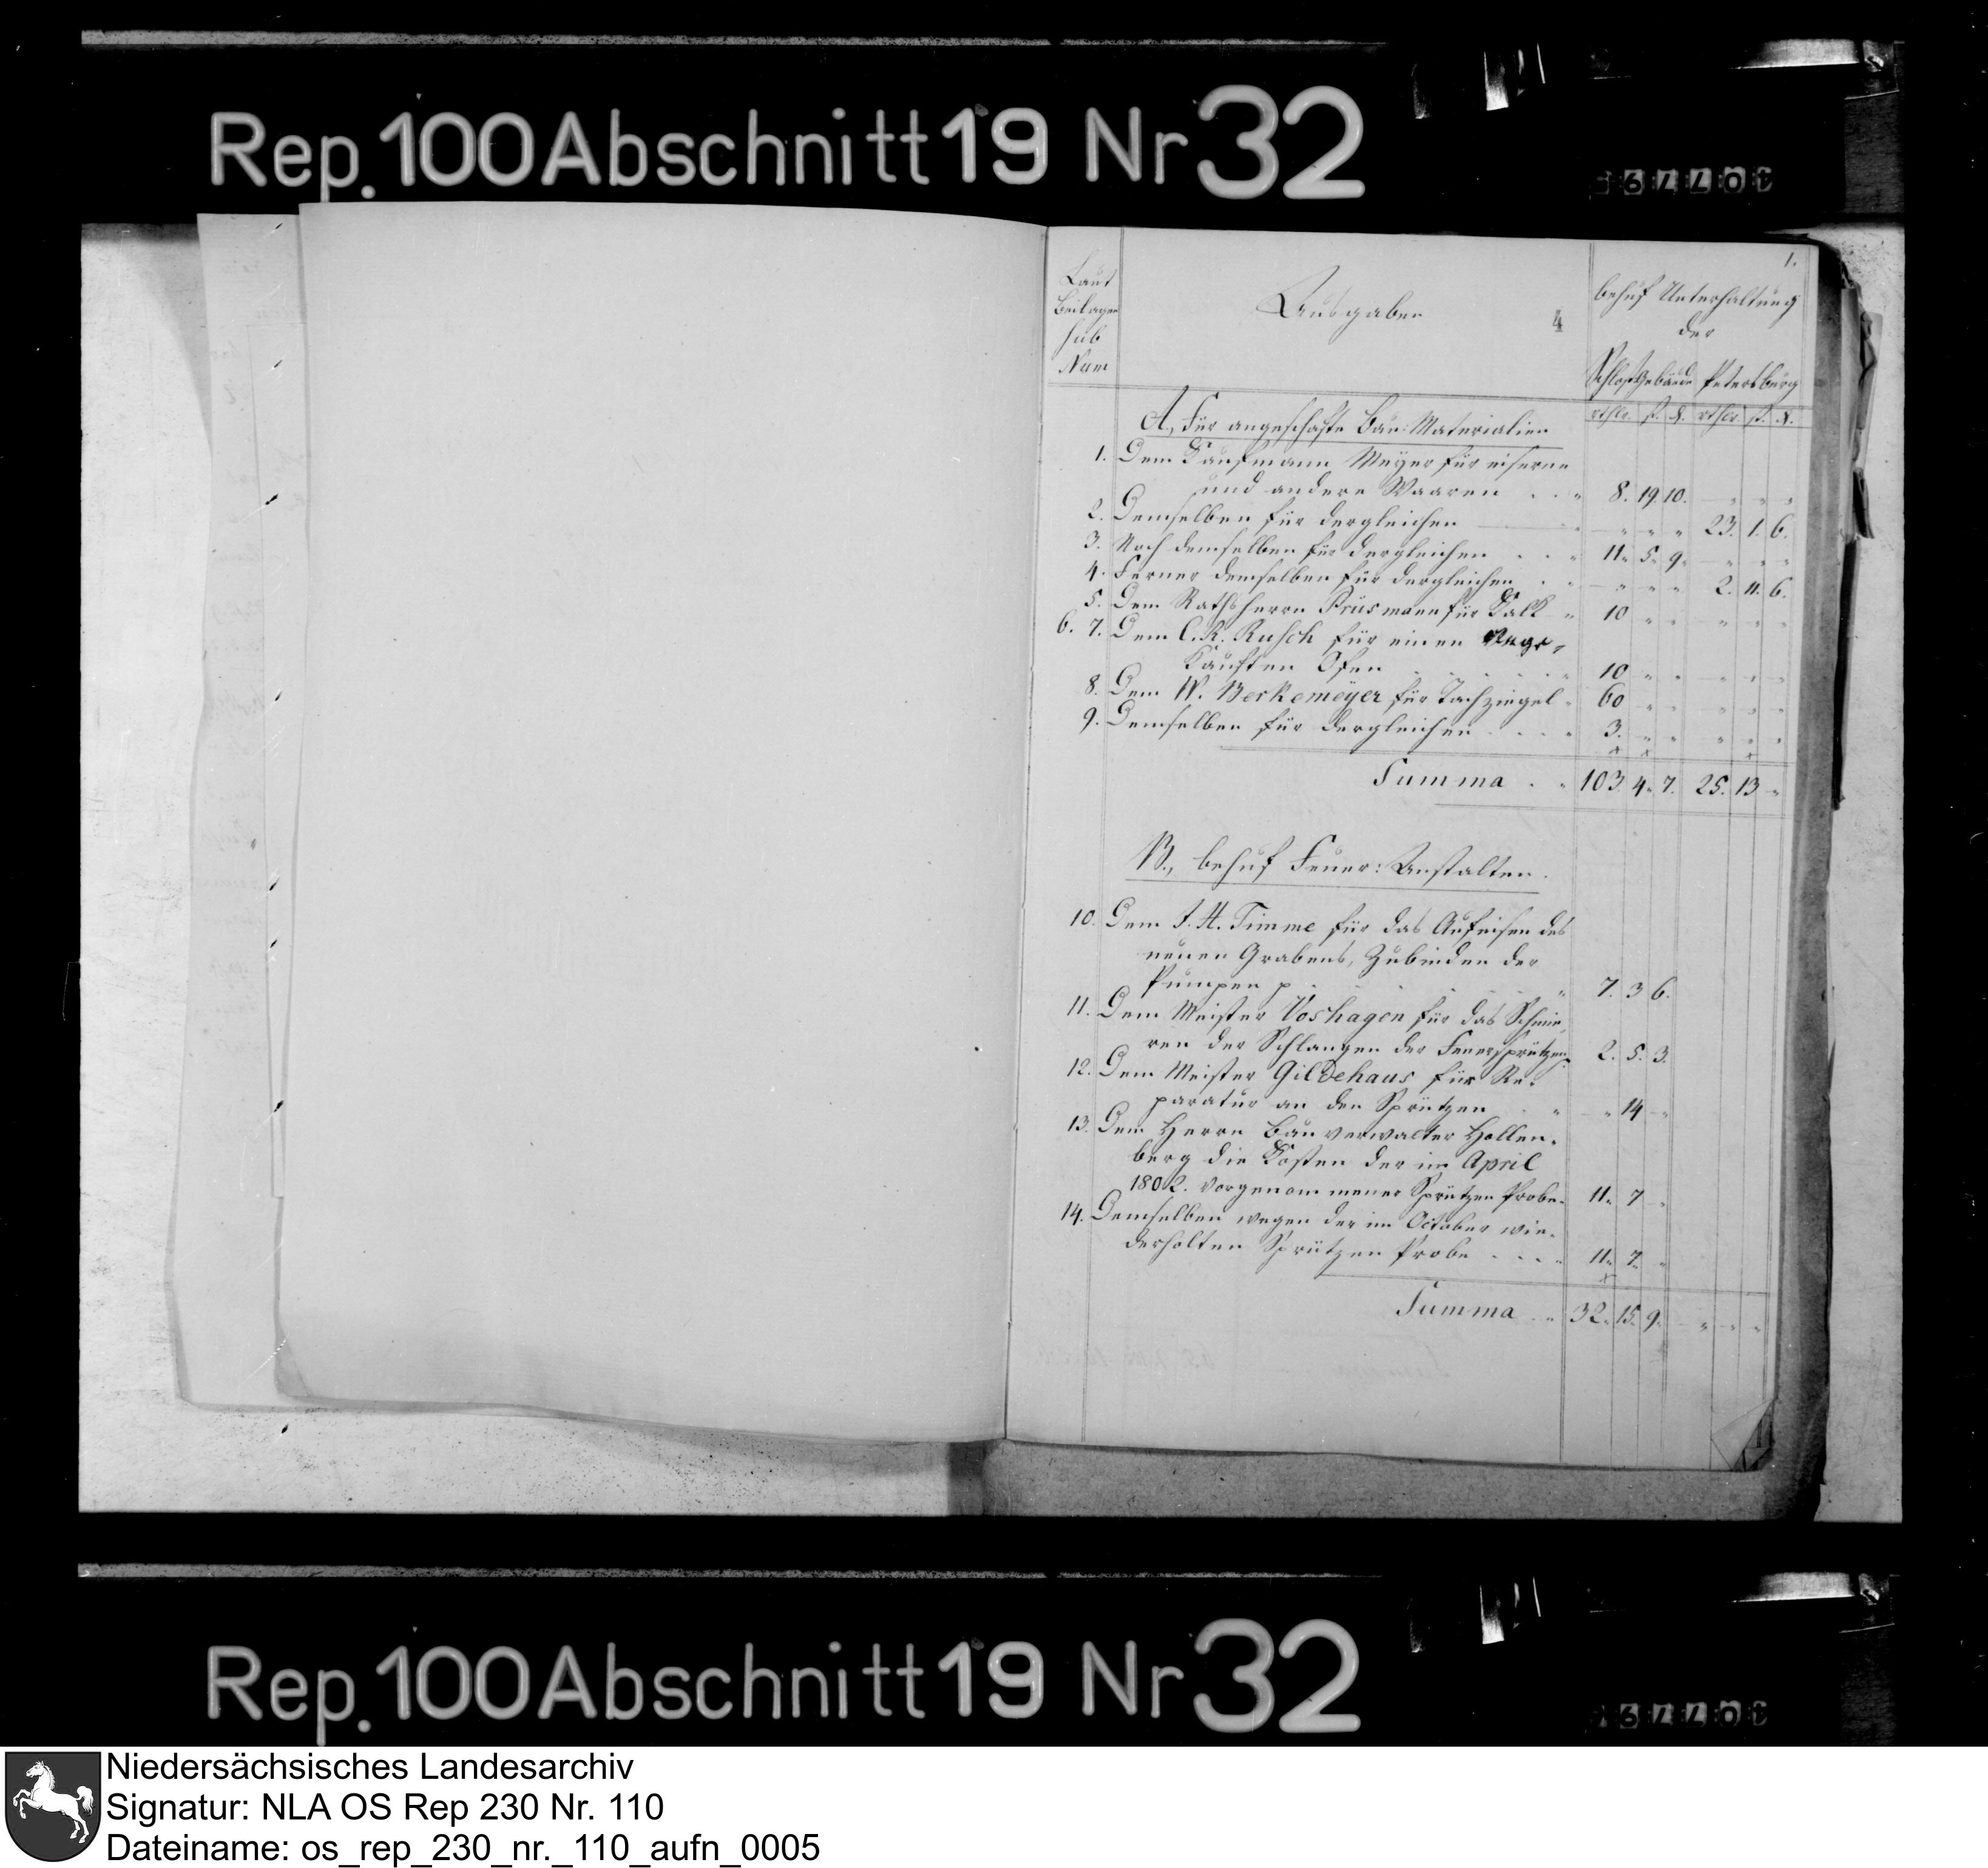 Rep.100 Abschnitt 19 Nr 32
1.
Laut
Beilagen
sub
Num
Ausgaben
4
behuf Unterhaltung
der
Schloßgebäude Petersburg
rthlr. ß. d. rthlr. ß. d.
A, Für angeschafte Bau-Materialien
1. Dem Kaufmann Meyer für eiserne
und andere Waaren . . " 8. 19. 10. " " "
2. Demselben für dergleichen " " " 23. 1. 6.
3. Noch demselben für dergleichen . . " 11. 5. 9. " " "
4. Ferner demselben für dergleichen . " " " " 2. 11. 6.
5. Dem Rathsherrn Prüsmann für Kalk " 10 " " " " "
6. 7. Dem C. R. Rusch für einen ange-
kauften Ofen . . . . " 10 " " " " "
8. Dem W. Berkemeyer für Dachziegel " 60 " " " " "
9. Demselben für dergleichen . . . " 3. " " " " "
Summa . " 103. 4. 7. 25. 13 "
B., behuf Feuer: Anstalten.
10. Dem J. H. Timme für das Aufeisen des
neuen Grabens, Zubinden der
Pumpen p . . . . " 7. 3 6.
11. Dem Meister Voshagen für das Schmie-
ren der Schlangen der Feuersprützen 2. 5. 3.
12. Dem Meister Gildehaus für Re-
paratur an den Sprützen . " " 14 "
13. Dem Herrn Bauverwalter Hollen-
berg die Kosten der im April
1802. vorgenommener Sprützen Probe. 11. 7 "
14. Demselben wegen der im October wie-
derholten Sprützen Probe . . . " 11. 7. "
Summa . " 32. 15. 9. " " "
Rep.100 Abschnitt 19 Nr 32
Niedersächsisches Landesarchiv
Signatur: NLA OS Rep 230 Nr. 110
Dateiname: os_rep_230_nr._110_aufn_0005